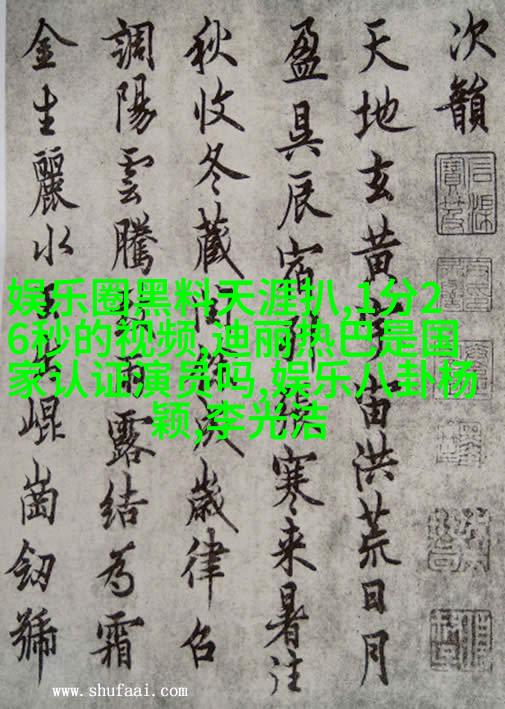 次韻
天地玄黄宙洪荒日月
盈昃辰宿寒来暑往
秋收冬藏閏成歲律召
調陽雲騰雨露結為霜
金生麗水崐崗劒號
娱乐圈黑料天涯扒,1分2
6秒的视频,迪丽热巴是国
家认证演员吗,娱乐八卦杨
颖,李光洁
www.shufaai.com